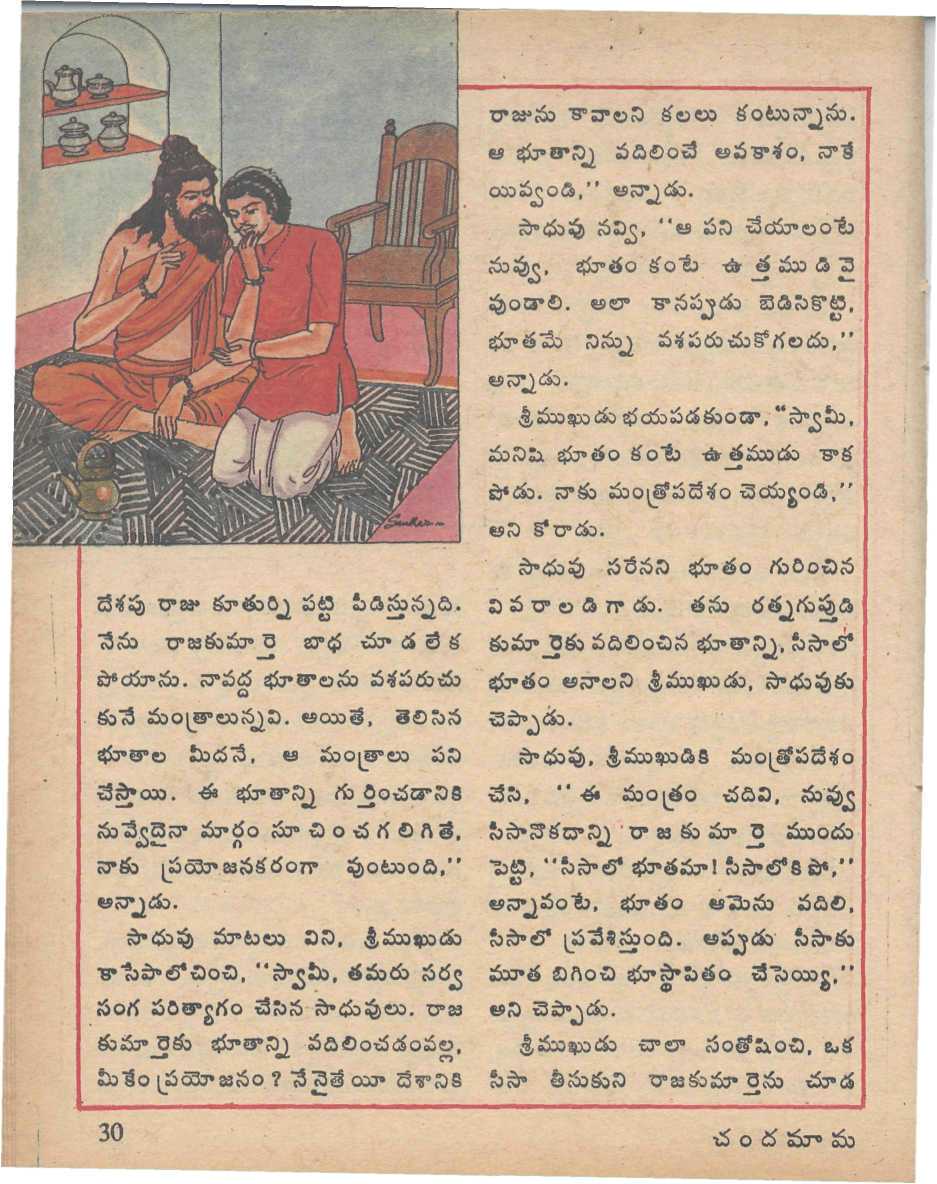 Sanker
దేశపు రాజు కూతుర్ని పట్టి పీడిస్తున్నది.
నేను రాజకుమార్తె బాధ చూడలేక
పోయాను. నావద్ద భూతాలను వశపరుచు
కునే మంత్రాలున్నవి. అయితే, తెలిసిన
భూతాల మీదనే, ఆ మంత్రాలు పని
చేస్తాయి. ఈ భూతాన్ని గుర్తించడానికి
నువ్వేదైనా మార్గం సూచించగలిగితే,
నాకు ప్రయోజనకరంగా వుంటుంది,''
అన్నాడు.
సాధువు మాటలు విని, శ్రీముఖుడు
కాసేపాలోచించి, ''స్వామీ, తమరు సర్వ
సంగ పరిత్యాగం చేసిన సాధువులు. రాజ
కుమార్తెకు భూతాన్ని వదిలించడంవల్ల,
మీకేం ప్రయోజనం? నేనైతే యీ దేశానికి
రాజును కావాలని కలలు కంటున్నాను.
ఆ భూతాన్ని వదిలించే అవకాశం, నాకే
యివ్వండి,'' అన్నాడు.
సాధువు నవ్వి, ''ఆ పని చేయాలంటే
నువ్వు, భూతం కంటే ఉత్తముడివై
వుండాలి. అలా కానప్పుడు బెడిసికొట్టి,
భూతమే నిన్ను వశపరుచుకోగలదు,''
అన్నాడు.
శ్రీముఖుడు భయపడకుండా, “స్వామీ,
మనిషి భూతం కంటే ఉత్తముడు కాక
పోడు. నాకు మంత్రోపదేశం చెయ్యండి,''
అని కోరాడు.
సాధువు సరేనని భూతం గురించిన
వివరాలడిగాడు. తను రత్నగుప్తుడి
కుమార్తెకు వదిలించిన భూతాన్ని, సీసాలో
భూతం అనాలని శ్రీముఖుడు, సాధువుకు
చెప్పాడు.
సాధువు, శ్రీముఖుడికి మంత్రోపదేశం
చేసి, ''ఈ మంత్రం చదివి, నువ్వు
సీసానొకదాన్ని రాజకుమార్తె ముందు
పెట్టి, ''సీసాలో భూతమా! సీసాలోకి పో,''
అన్నావంటే, భూతం ఆమెను వదిలి,
సీసాలో ప్రవేశిస్తుంది. అప్పుడు సీసాకు
మూత బిగించి భూస్థాపితం చేసెయ్యి,''
అని చెప్పాడు.
శ్రీముఖుడు చాలా సంతోషించి, ఒక
సీసా తీసుకుని రాజకుమార్తెను చూడ
30
చందమామ